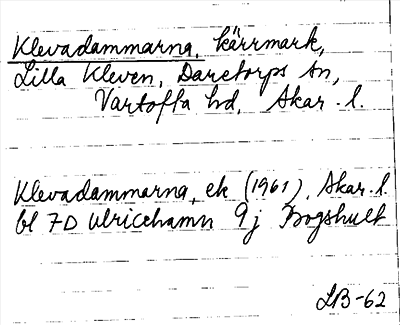 Klevadammarna, kärrmark,
Lilla Kleven, Daretorps sn,
Vartofta hd, Skar. l.
Klevadammarna, ek (1961), Skar. l.
bl 7D Ulricehamn 9j Bogshult
LB-62